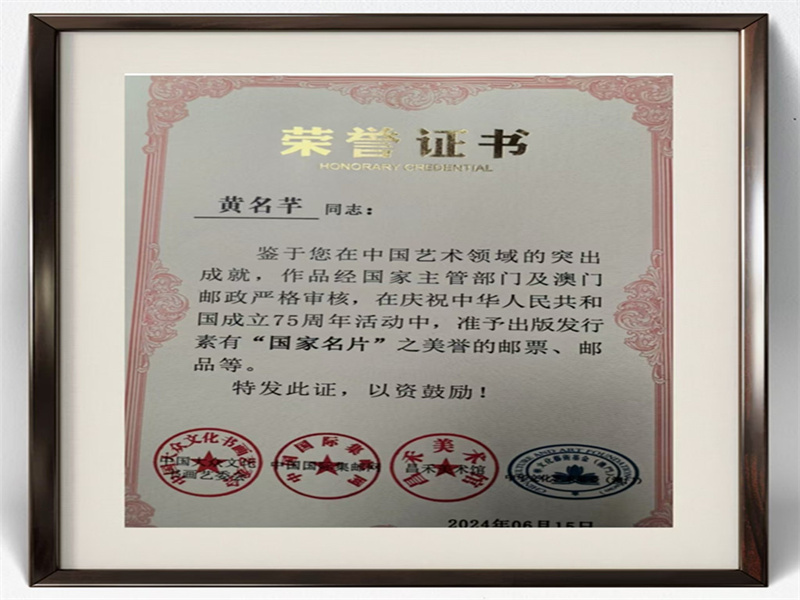 荣誉证书
HONORARY CREDENTIAL
黄名芊 同志：
鉴于您在中国艺术领域的突出
成就，作品经国家主管部门及澳门
邮政严格审核，在庆祝中华人民共和
国成立75周年活动中，准予出版发行
素有“国家名片”之美誉的邮票、邮
品等。
特发此证，以资鼓励！
中国大众文化
书画艺委会
中国国际集邮网
昌禾美术馆
2024年06月15日